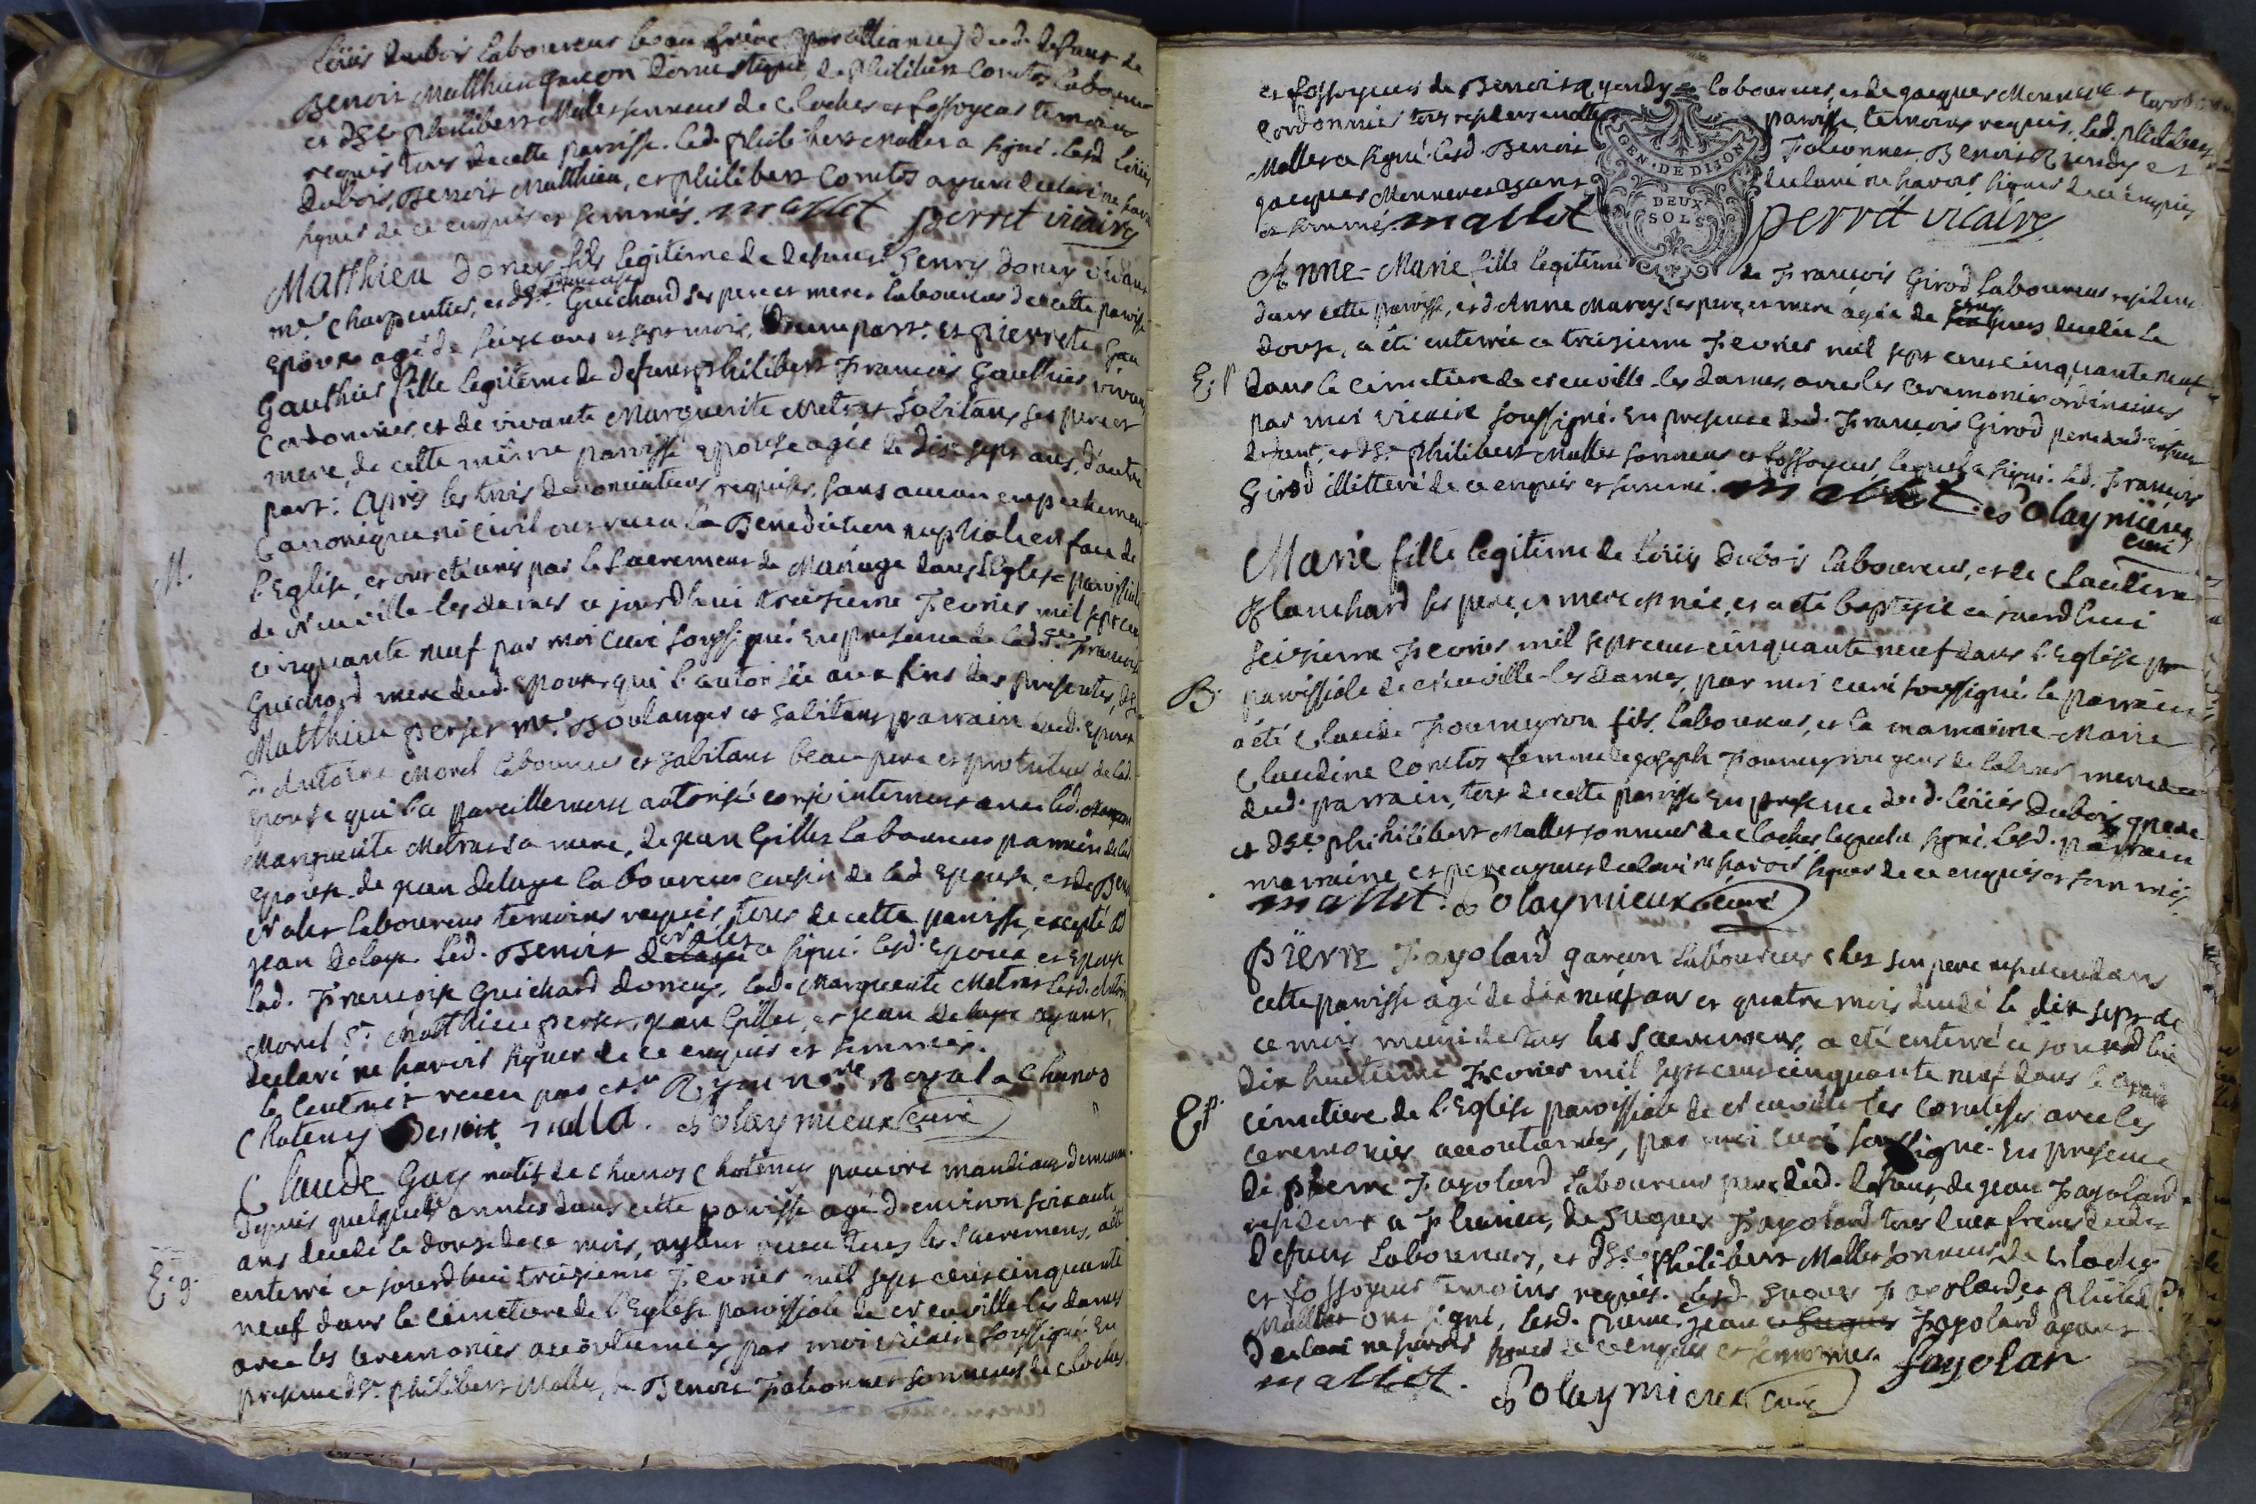 Loüis Dubois laboureur beau frère (par alliance) dud. defunt de
Benoit Matthieu garçon Domestique, de Philibert Comtet laboureur
et dSr. philibert Mallet sonneur de Cloches et fossoyeur temoins
requis tous de cette paroisse. Led. philibert Mallet a signé. Lesd. Loüis
Dubois, Benoit Matthieu, et philibert Comtet ayant declaré ne savoir
signer de ce enquis et sommés. mallet perret vicaire
Matthieu Doney fils legitime de defunt henry Doney vivant
me. Charpentier, et dse. françoise Guichard ses pere et mere laboureur de cette paroisse
Epoux agé de seize ans et sept mois, D'une part. et Pierrette
Gauthier fille legitime de defunt philibert François Gauthier vivant
Cordonnier, et de vivante Marguerite Metras habitans ses pere et
mere, de cette même paroisse Epouse agée de dix sept ans, d'autre
part. Après les trois denonciations requises, sans aucun empechement
Canonique ni civil ont receu la Benediction nuptiale en face de
M. l'Eglise, et ont eté unis par le Sacrement de Mariage dans l'Eglise paroissiale
de Neuville-les-dames ce jourd'hui treizieme Fevrier mil sept cent
cinquante neuf par moi curé soussigné. En presence de lad. Se. Françoise
Guichard mere dud. Epoux, qui l'a autorisé aux fins des presentes, de Sr.
Matthieu perset me. Boulanger et habitant parrain dud. Epoux
d'Antoine Morel laboureur et habitant beau-pere et protuteur de lad.
Epouse qui l'a pareillement autorisée conjointement avec lad.
Marguerite Metras sa mere, de Jean Gillet laboureur parrain de lad.
Epouse, de Jean Delaye laboureur cousin de lad. Epouse, et de Benoit
Nalet laboureur temoins requis, tous de cette paroisse, excepté led.
Jean Delaye. Led. Benoit Delaye Nalet a signé. Lesd. Epoux et Epouse
Lad. Françoise Guichard Doney, lad. Marguerite Metras, lesd. Antoine
Morel Sr. Matthieu perset, Jean Gillet, et Jean Delaye ayant
declaré ne savoir signer de ce enquis et sommés.
le Contrat receu par Me. Ryon nore. Royal a Chanos
Chatenay Benoit nalla. Polaymieux curé
Claude Gay natif de Chanos Chatenay pauvre mandiant demeurant
depuis quelques années dans cette paroisse agé d'environ soixante
ans decedé le douze de ce mois, ayant receu tous les Sacremens, a eté
E. g. enterré ce jourd'hui treizieme Fevrier mil sept cent cinquante
neuf dans le cimetiere de l'Eglise paroissiale de Neuville les dames
avec les ceremonies accoutumées, par moi vicaire soussigné. En
presence dSr. philibert Mallet, de Benoit Falconnet sonneurs de cloches
et fossoyeurs de Benoit laboureur, et de jacques Monneret
Cordonnier tous paroisse, temoins requis. Led. philibert
Mallet a signé. Lesd. Benoit Falconnet. Benoit et
jacques Monneret ayant declaré ne savoir signer de ce enquis
et sommés. mallet perret vicaire
GEN. DE DIJON
DEUX
SOLS
Anne-Marie fille legitime de François Girod laboureur resident
dans cette paroisse, et d'Anne Marey ses pere, et mere agée de jours decedée le
douze, a été enterrée ce treizieme Fevrier mil sept cent cinquante neuf
E. P dans le cimetiere de Neuville-les-dames, avec les ceremonies ordinaires
par moi vicaire soussigné. En presence dud. François Girod pere dud. enfant
defunt, et dSr. philibert Mallet sonneur et fossoyeur, lequel a signé. Led. François
Girod illitteré de ce enquis et sommé. mallet. Polaymieux
curé
Marie fille legitime de Loüis Dubois laboureur, et de Claudine
Blanchard ses pere, et mere est née, et a eté baptisée ce jourd'hui
seizieme Fevrier mil sept cent cinquante neuf dans l'Eglise
B. paroissiale de Neuville-les-dames, par moi curé soussigné. le parrain
a été Claude Fourneyron fils laboureur, et la marraine Marie
Claudine Comtet femme de joseph Fourneyron gens de labeur mere
dud. parrain, tous de cette paroisse En presence dud. Loüis Dubois pere
et dSr. philibert Mallet sonneur de cloches lequel a signé. Lesd. parrain
marraine et pere ayant declaré ne savoir signer de ce enquis et sommés.
mallet. Polaymieux curé
Pierre Fayolard garçon laboureur chez son pere resident dans
cette paroisse agé de dix neuf ans et quatre mois decedé le dix sept de
ce mois muni de tous les Sacremens, a eté enterré ce jourd'hui
dix huitieme Fevrier mil sept cent cinquante neuf dans le
Ep. cimetiere de l'Eglise paroissiale de Neuville les Comtesses avec les
ceremonies accoutumées, par moi curé soussigné. En presence
de pierre Fayolard laboureur pere dud. defunt, de jean Fayolard
resident a Fleurieu, de hugues Fayolard tous deux freres dud.
defunt laboureurs, et dSr. philibert Mallet sonneur de cloches
et fossoyeur temoins requis. Lesd. hugues Fayolard, et Philibert
Mallet ont signé, lesd. pierre, jean et hugues Fayolard ayant
declaré ne savoir signer de ce enquis et sommés. fayolar
mallet. Polaymieux curé